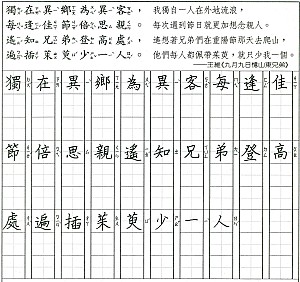 獨在異鄉為異客，
每逢佳節倍思親。
遙知兄弟登高處，
遍插茱萸少一人。
我獨自一人在外地流浪，
每次遇到節日就更加想念親人。
遙想著兄弟們在重陽節那天去爬山，
他們每人都佩帶茱萸，就只少我一個。
——王維〈九月九日憶山東兄弟〉
獨在異鄉為異客每逢佳
節倍思親遙知兄弟登高
處遍插茱萸少一人